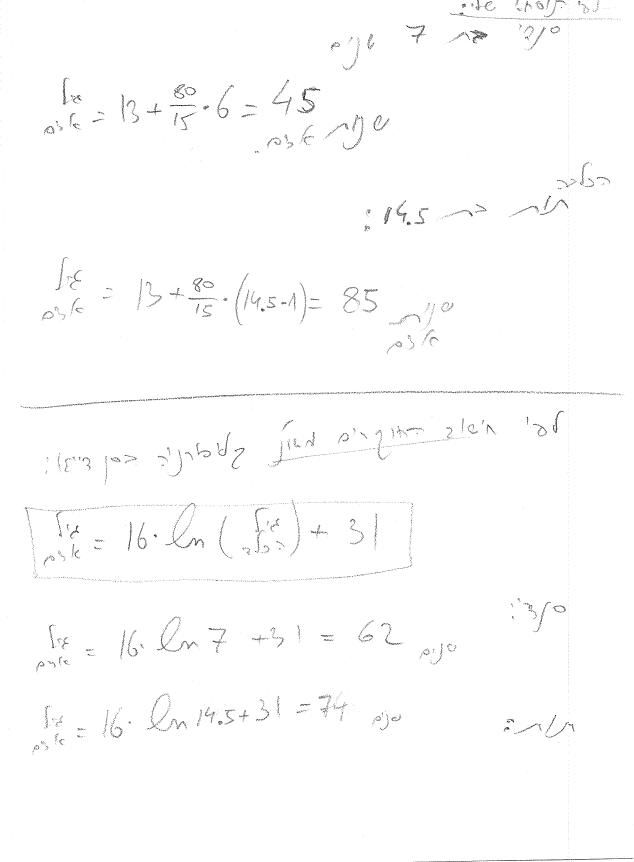 לפי נוסחה שלי:
סנדי בת 7 שנים
גיל אדם = 13 + 80/15 · 6 = 45 שנות אדם.
הכלבה
תות בת 14.5:
גיל אדם = 13 + 80/15 · (14.5-1) = 85 שנות אדם
לפי חישוב החוקרים מאונ' קליפורניה בסן דייגו:
גיל אדם = 16 · ln (גיל הכלב) + 31
סנדי:
גיל אדם = 16 · ln 7 + 31 = 62 שנים
תות:
גיל אדם = 16 · ln 14.5 + 31 = 74 שנים